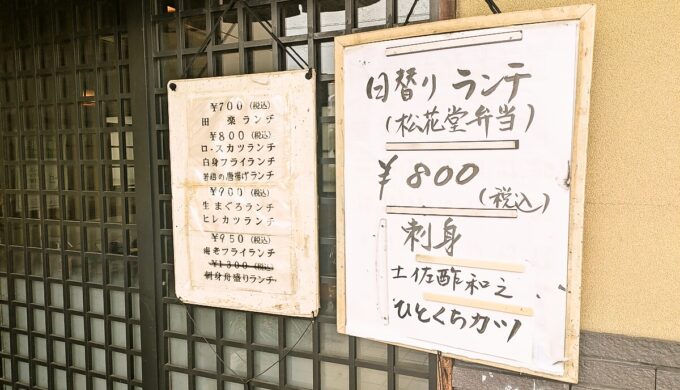 ¥700(税込)
田楽ランチ
¥800(税込)
ロースカツランチ
白身フライランチ
若鶏の唐揚げランチ
¥900(税込)
生まぐろランチ
ヒレカツランチ
¥950(税込)
海老フライランチ
¥1300(税込)
刺身舟盛りランチ
日替りランチ
(松花堂弁当)
¥800
(税込)
刺身
土佐酢和え
ひとくちカツ